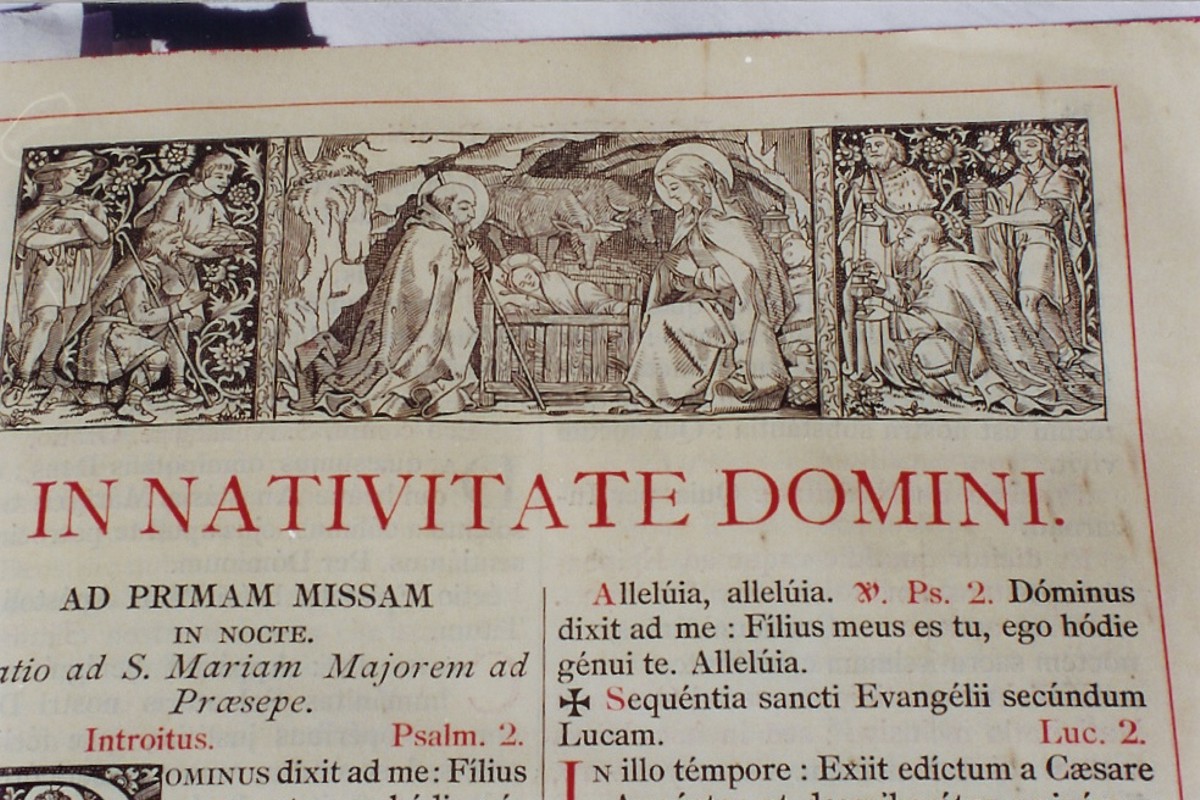 IN NATIVITATE DOMINI.
AD PRIMAM MISSAM
IN NOCTE.
ad S. Mariam Majorem ad
Præsepe.
Introitus. Psalm. 2.
DOMINUS dixit ad me: Fílius
Allelúia, allelúia. ℣. Ps. 2. Dóminus
dixit ad me : Fílius meus es tu, ego hódie
génui te. Allelúia.
✠ Sequéntia sancti Evangélii secúndum
Lucam. Luc. 2.
IN illo témpore : Exiit edíctum a Cæsare